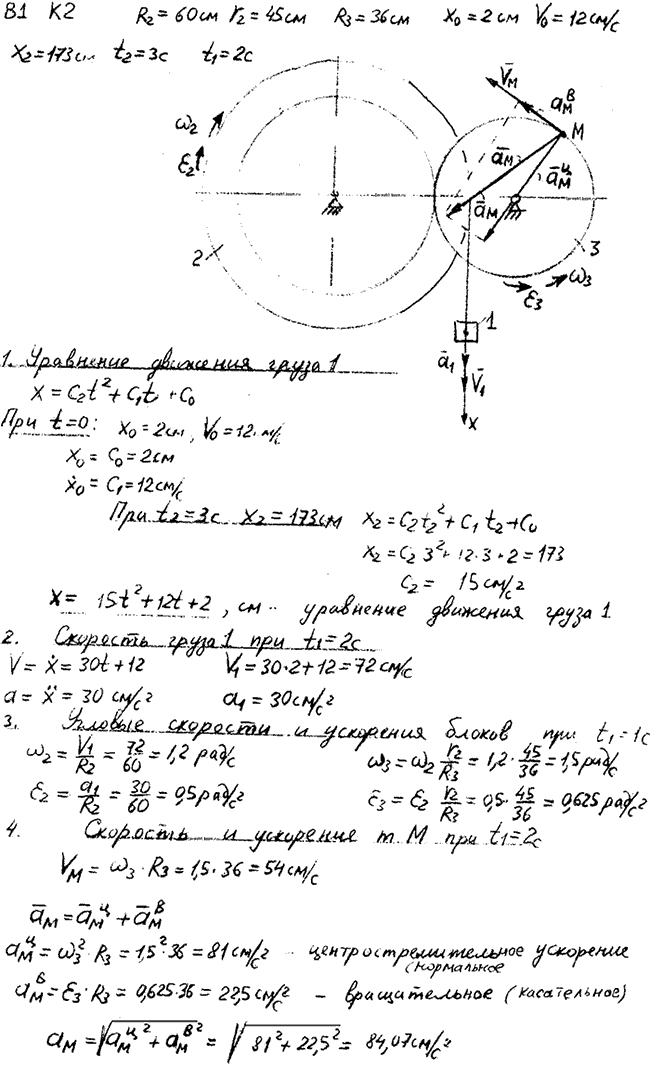 В1 К2 R₂=60см r₂=45см R₃=36см x₀=2см V₀=12см/с
x₂=173см t₂=3с t₁=2с
V̄м
aмᴮ
M
ω₂
ε₂
āм
āмᶣ
āм
2
3
ε₃
ω₃
1
ā₁
V̄₁
x
1. Уравнение движения груза 1
x=C₂t²+C₁t+C₀
При t=0: x₀=2см, V₀=12см/с
x₀=C₀=2см
ẋ₀=C₁=12см/с
При t₂=3с x₂=173см x₂=C₂t₂²+C₁t₂+C₀
x₂=C₂3²+12·3+2=173
C₂= 15см/с²
x= 15t²+12t+2, см - уравнение движения груза 1
2. Скорость груза 1 при t₁=2с
V=ẋ=30t+12 V₁=30·2+12=72см/с
a=ẍ=30 см/с² a₁=30см/с²
3. Угловые скорости и ускорения блоков при t₁=1с
ω₂=V₁/R₂=72/60=1,2рад/с ω₃=ω₂ r₂/R₃=1,2·45/36=1,5рад/с
ε₂=a₁/R₂=30/60=0,5рад/с² ε₃=ε₂ r₂/R₃=0,5·45/36=0,625рад/с²
4. Скорость и ускорение т. М при t₁=2с
Vм=ω₃·R₃=1,5·36=54см/с
āм=āмц+āмв
aмц=ω₃²·R₃=1,5²·36=81см/с² - центростремительное ускорение
(нормальное
aмв=ε₃·R₃=0,625·36=22,5см/с² - вращительное (касательное)
aм=√(aмц²+aмв²)=√(81²+22,5²)=84,07см/с²